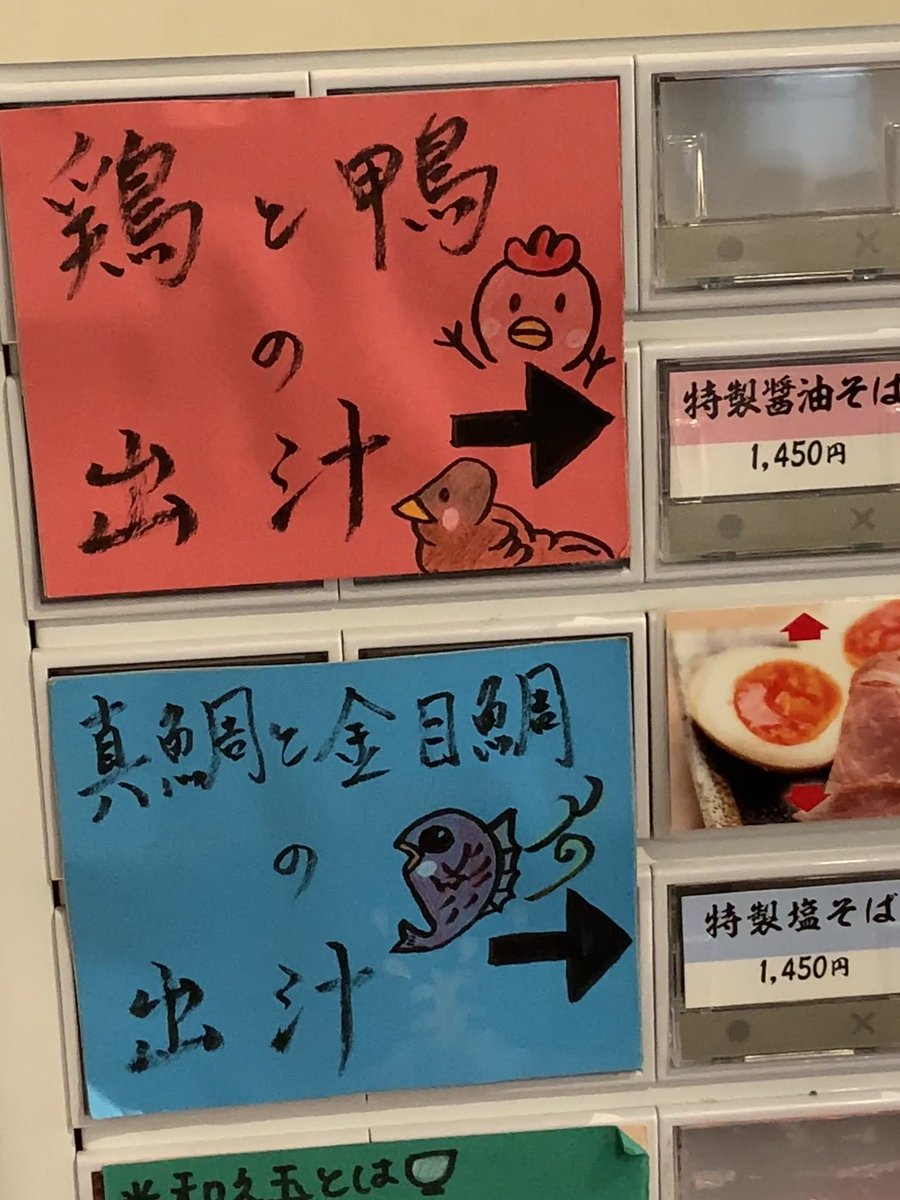 鶏と鴨
の
出汁
特製醤油そば
1,450円
真鯛と金目鯛
の
出汁
特製塩そば
1,450円
※和え玉とは